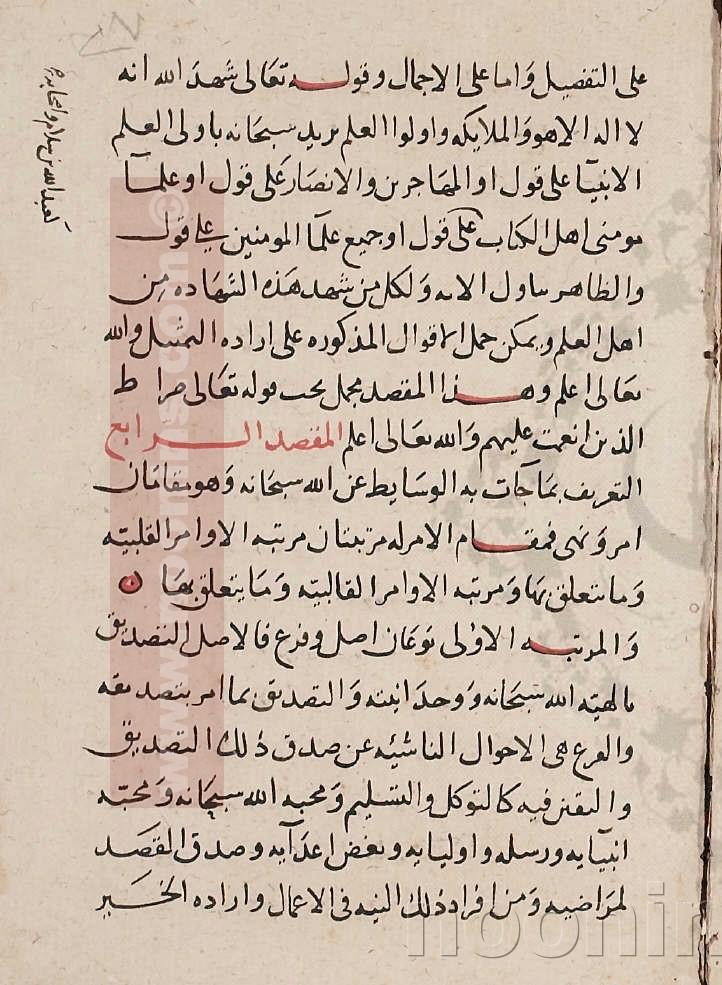 على التفصيل واما على الاجمال وقوله تعالى شهد الله انه
لا اله الا هو والملايكه واولوا العلم يريد سبحانه باولى العلم
الانبيآ على قول او المهاجرين والانصار على قول او علمآ
مومنى اهل الكتاب على قول او جميع علمآ المومنين على قول
والظاهر تناول الايه ولكل من شهد هذه الشهاده من
اهل العلم ويمكن حمل الاقوال المذكوره على اراده التمثيل والله
تعالى اعلم وهذا المقصد مجمل تحت قوله تعالى صراط
الذين انعمت عليهم والله تعالى اعلم المقصد الرابع
التعريف بما جآت به الوسايط عن الله سبحانه وهو مقامان
امر ونهى فمقام الامر له مرتبتان مرتبه الاوامر القلبيته
وما يتعلق بها ومرتبه الاوامر القالبيته وما يتعلق بها
والمرتبه الاولى نوعان اصل وفرع فالاصل التصديق
بالهيته الله سبحانه ووحدانيته والتصديق بما امر بتصديقه
والفرع هى الاحوال الناشيه عن صدق ذلك التصديق
واليقين فيه كالتوكل والتسليم ومحبه الله سبحانه ومحبته
انبيآيه ورسله واوليايه وبغض اعدآيه وصدق القصد
لمراضيه ومن افراد ذلك النيه فى الاعمال واراده الخير
كعبد الله بن سلام واصحابه
noonin